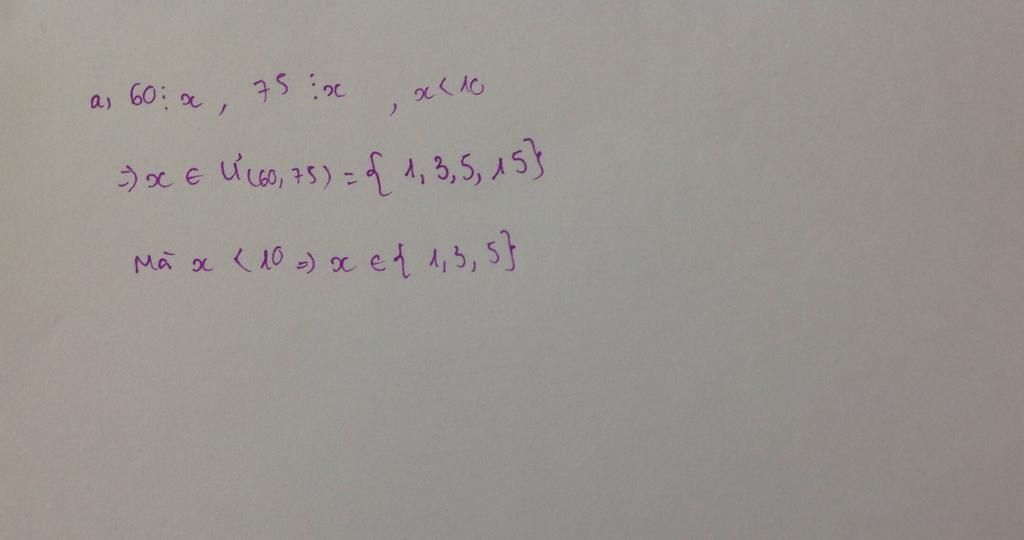 a, 60 ⋮ x , 75 ⋮ x , x < 10
=> x ∈ Ư(60, 75) = { 1, 3, 5, 15}
Mà x < 10 => x ∈ { 1, 3, 5}